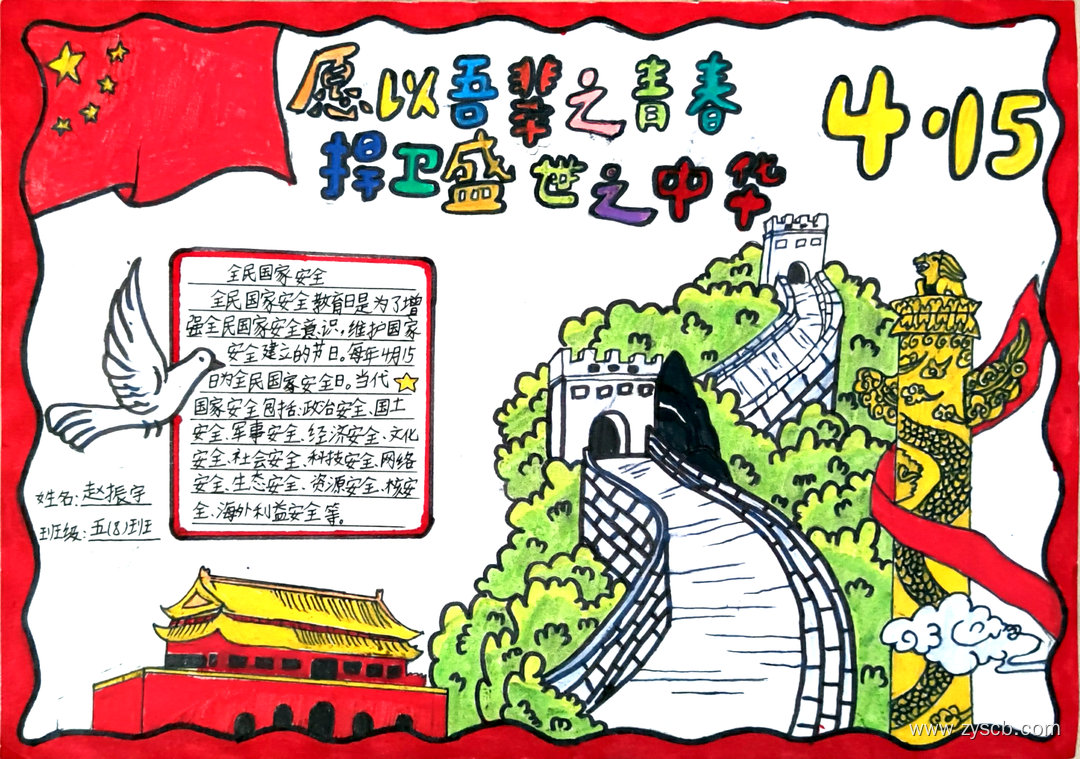 愿以吾辈之青春
捍卫盛世之中华
4·15
全民国家安全
全民国家安全教育日是为了增
强全民国家安全意识,维护国家
安全建立的节日。每年4月15
日为全民国家安全日。当代
国家安全包括:政治安全、国土
安全、军事安全、经济安全、文化
安全、社会安全、科技安全、网络
安全、生态安全、资源安全、核安
全、海外利益安全等。
姓名:赵振宇
班级:五(8)班
www.zyscb.com